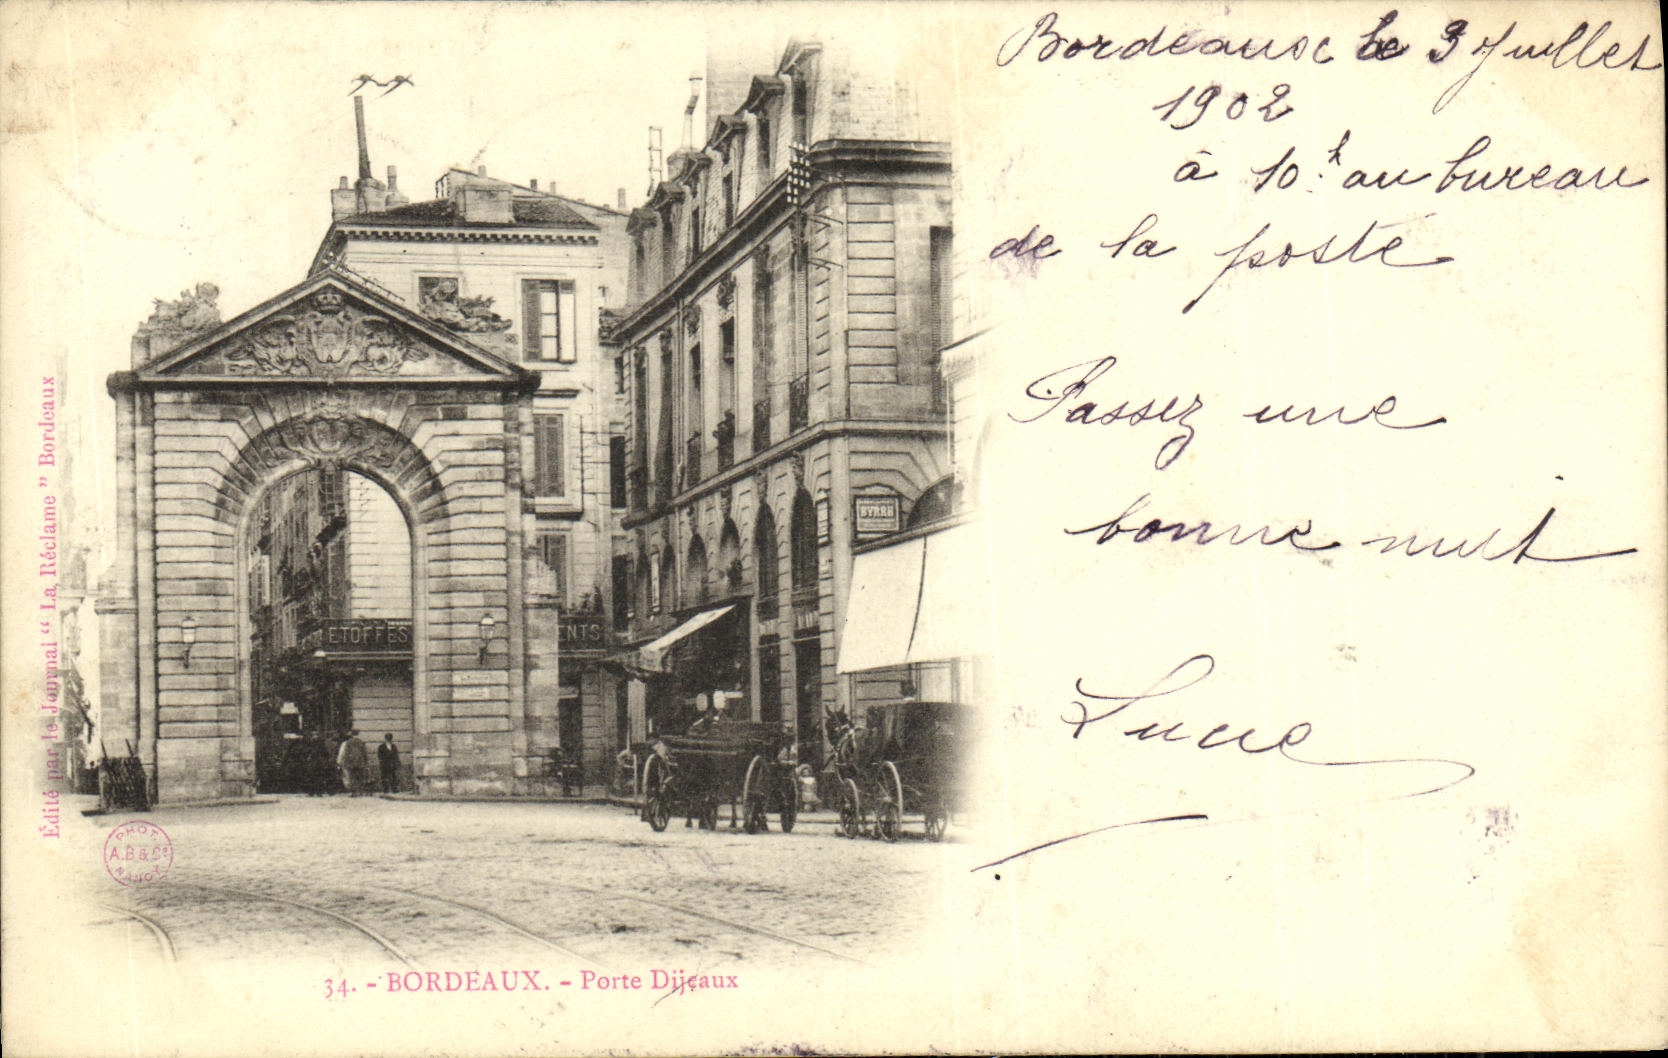 Bordeaux le 3 Juillet
1902
à 10.h au bureau
de la poste
Passez une
bonne nuit
Lucie
BYRRH
ETOFFES
ENTS
Édité par le Journal “ La Réclame ” Bordeaux
PHOT.
A.B & Cie
NANCY
34. - BORDEAUX. - Porte Dijeaux